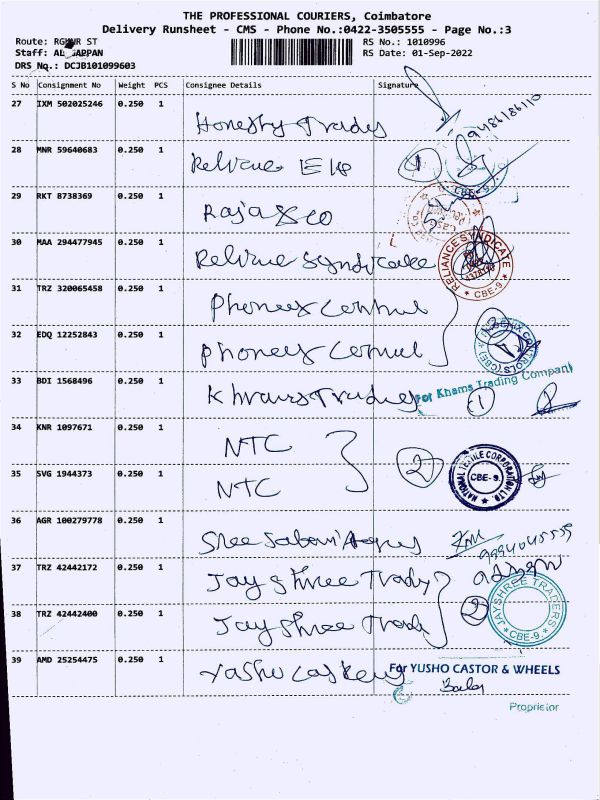 THE PROFESSIONAL COURIERS, Coimbatore
Delivery Runsheet - CMS - Phone No.:0422-3505555 - Page No.:3
Route: ST
RS No.: 1010996
Staff:
RS Date: 01-Sep-2022
DRS No.: DCJB101099603
S No Consignment No Weight PCS Consignee Details Signature
27 IXM 502025246 0.250 1 Honesty Trades
9486186110
28 MNR 59640683 0.250 1 Relience 1
CBE-9
29 RKT 8738369 0.250 1 Raja & co
30 MAA 294477945 0.250 1 Relience Syndicate
RELIANCE SYNDICATE CBE-9
31 TRZ 320065458 0.250 1 Phonex Control
32 EDQ 12252843 0.250 1 Phonex Control 2
CONTROLS (CBE)
33 BDI 1568496 0.250 1 Khams Trading 1
For Khams Trading Company
34 KNR 1097671 0.250 1 NTC
2 NATIONAL TEXTILE CORPORATION LTD. CBE-9.
35 SVG 1944373 0.250 1 NTC
36 AGR 100279778 0.250 1 Shree
9994045555
37 TRZ 42442172 0.250 1 Jay Shree Trady
38 TRZ 42442400 0.250 1 Jay Shree Trade 2
JAYSHREE TRADERS CBE-9.
39 AMD 25254475 0.250 1 Yasho
For YUSHO CASTOR & WHEELS
Proprietor